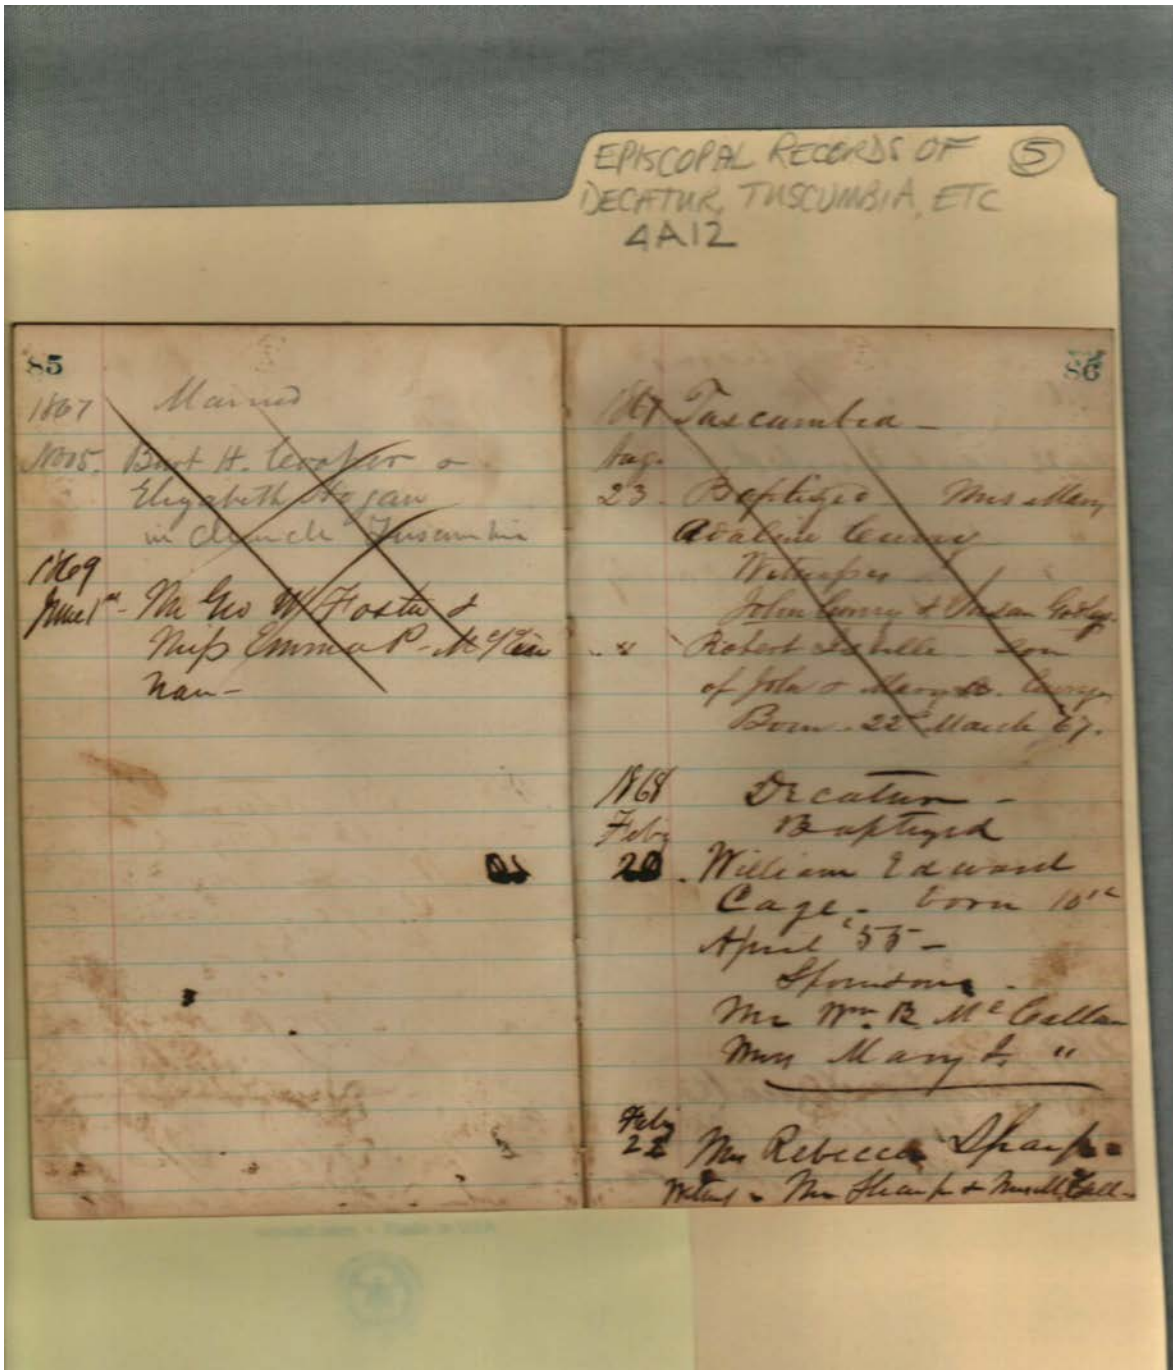 EPISCOPAL RECORDS OF 5
DECATUR, TUSCUMBIA, ETC
4A12
85
1867 Married
Nov 5. Burt H. &
Elizabeth Hogan
in church Tuscumbia
1869
June 1st - Mr Geo W Foster &
Miss Emma P. McTier
nan -
86
1867 Tuscumbia -
Aug.
23. Baptized Mrs Mary
Adaline
Witnesses
John & Susan
" Robert son
of John & Mary A.
Born 22d March 67.
1868 Decatur -
Feby Baptized
20. William Edward
Cage, - born 10th
April '55 -
Sponsors -
Mr Wm. B. McCallan
Mrs Mary "
Feby
22 Mrs Rebecca Sharp -
Mr Sharp &